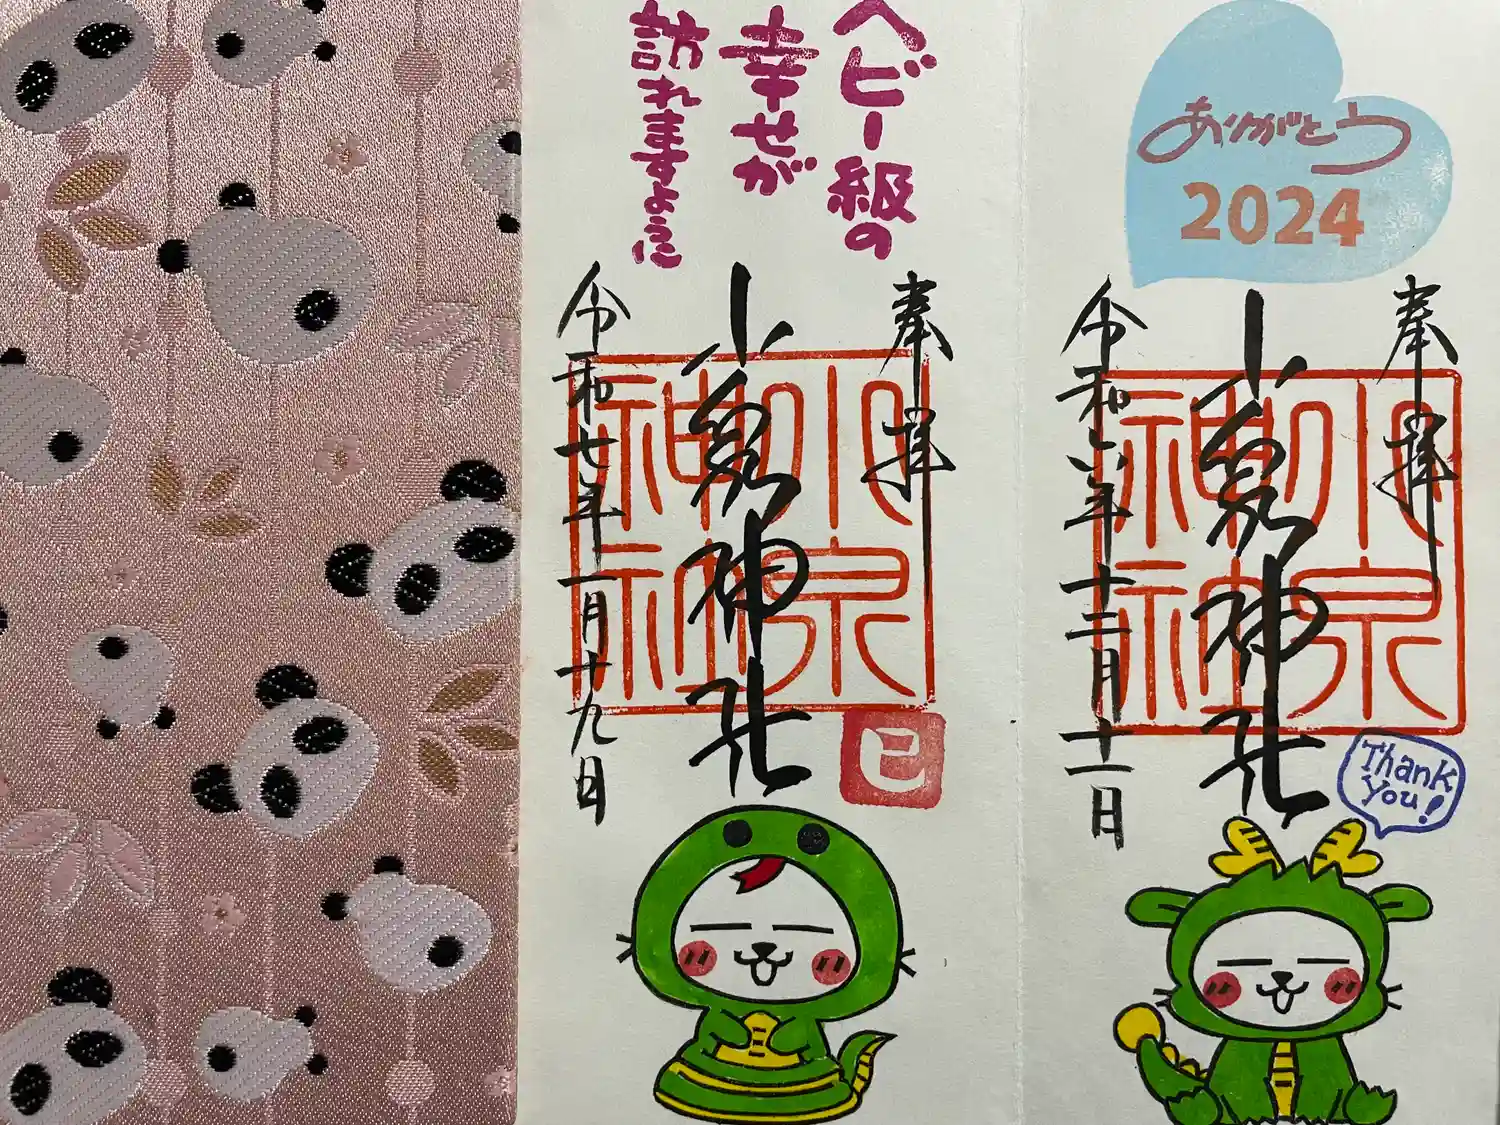 ありがとう
2024
奉拝
小泉神社
小泉神社
令和六年十二月十一日
Thank
You!
ヘビー級の
幸せが
訪れますように
奉拝
小泉神社
小泉神社
令和七年一月十九日
巳